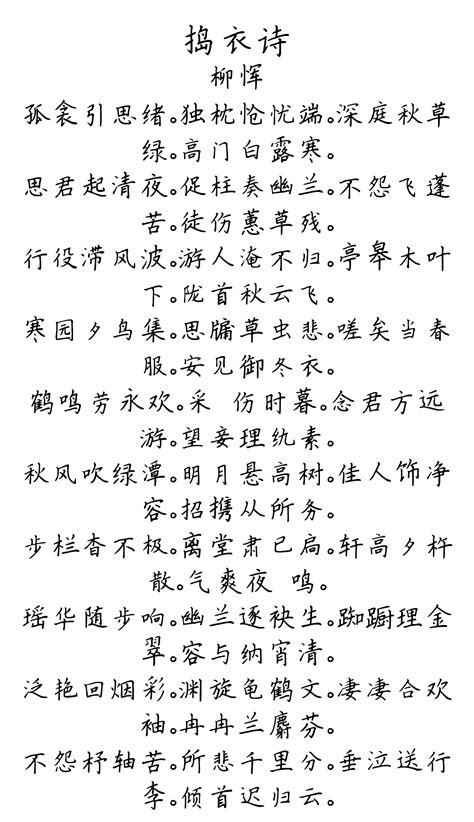 捣衣诗
柳恽
孤衾引思绪。独枕怆忧端。深庭秋草
绿。高门白露寒。
思君起清夜。促柱奏幽兰。不怨飞蓬
苦。徒伤蕙草残。
行役滞风波。游人淹不归。亭皋木叶
下。陇首秋云飞。
寒园夕鸟集。思牖草虫悲。嗟矣当春
服。安见御冬衣。
鹤鸣劳永欢。采 伤时暮。念君方远
游。望妾理纨素。
秋风吹绿潭。明月悬高树。佳人饰净
容。招携从所务。
步栏杳不极。离堂肃已扃。轩高夕杵
散。气爽夜 鸣。
瑶华随步响。幽兰逐袂生。踟蹰理金
翠。容与纳宵清。
泛艳回烟彩。渊旋龟鹤文。凄凄合欢
袖。冉冉兰麝芬。
不怨杼轴苦。所悲千里分。垂泣送行
李。倾首迟归云。